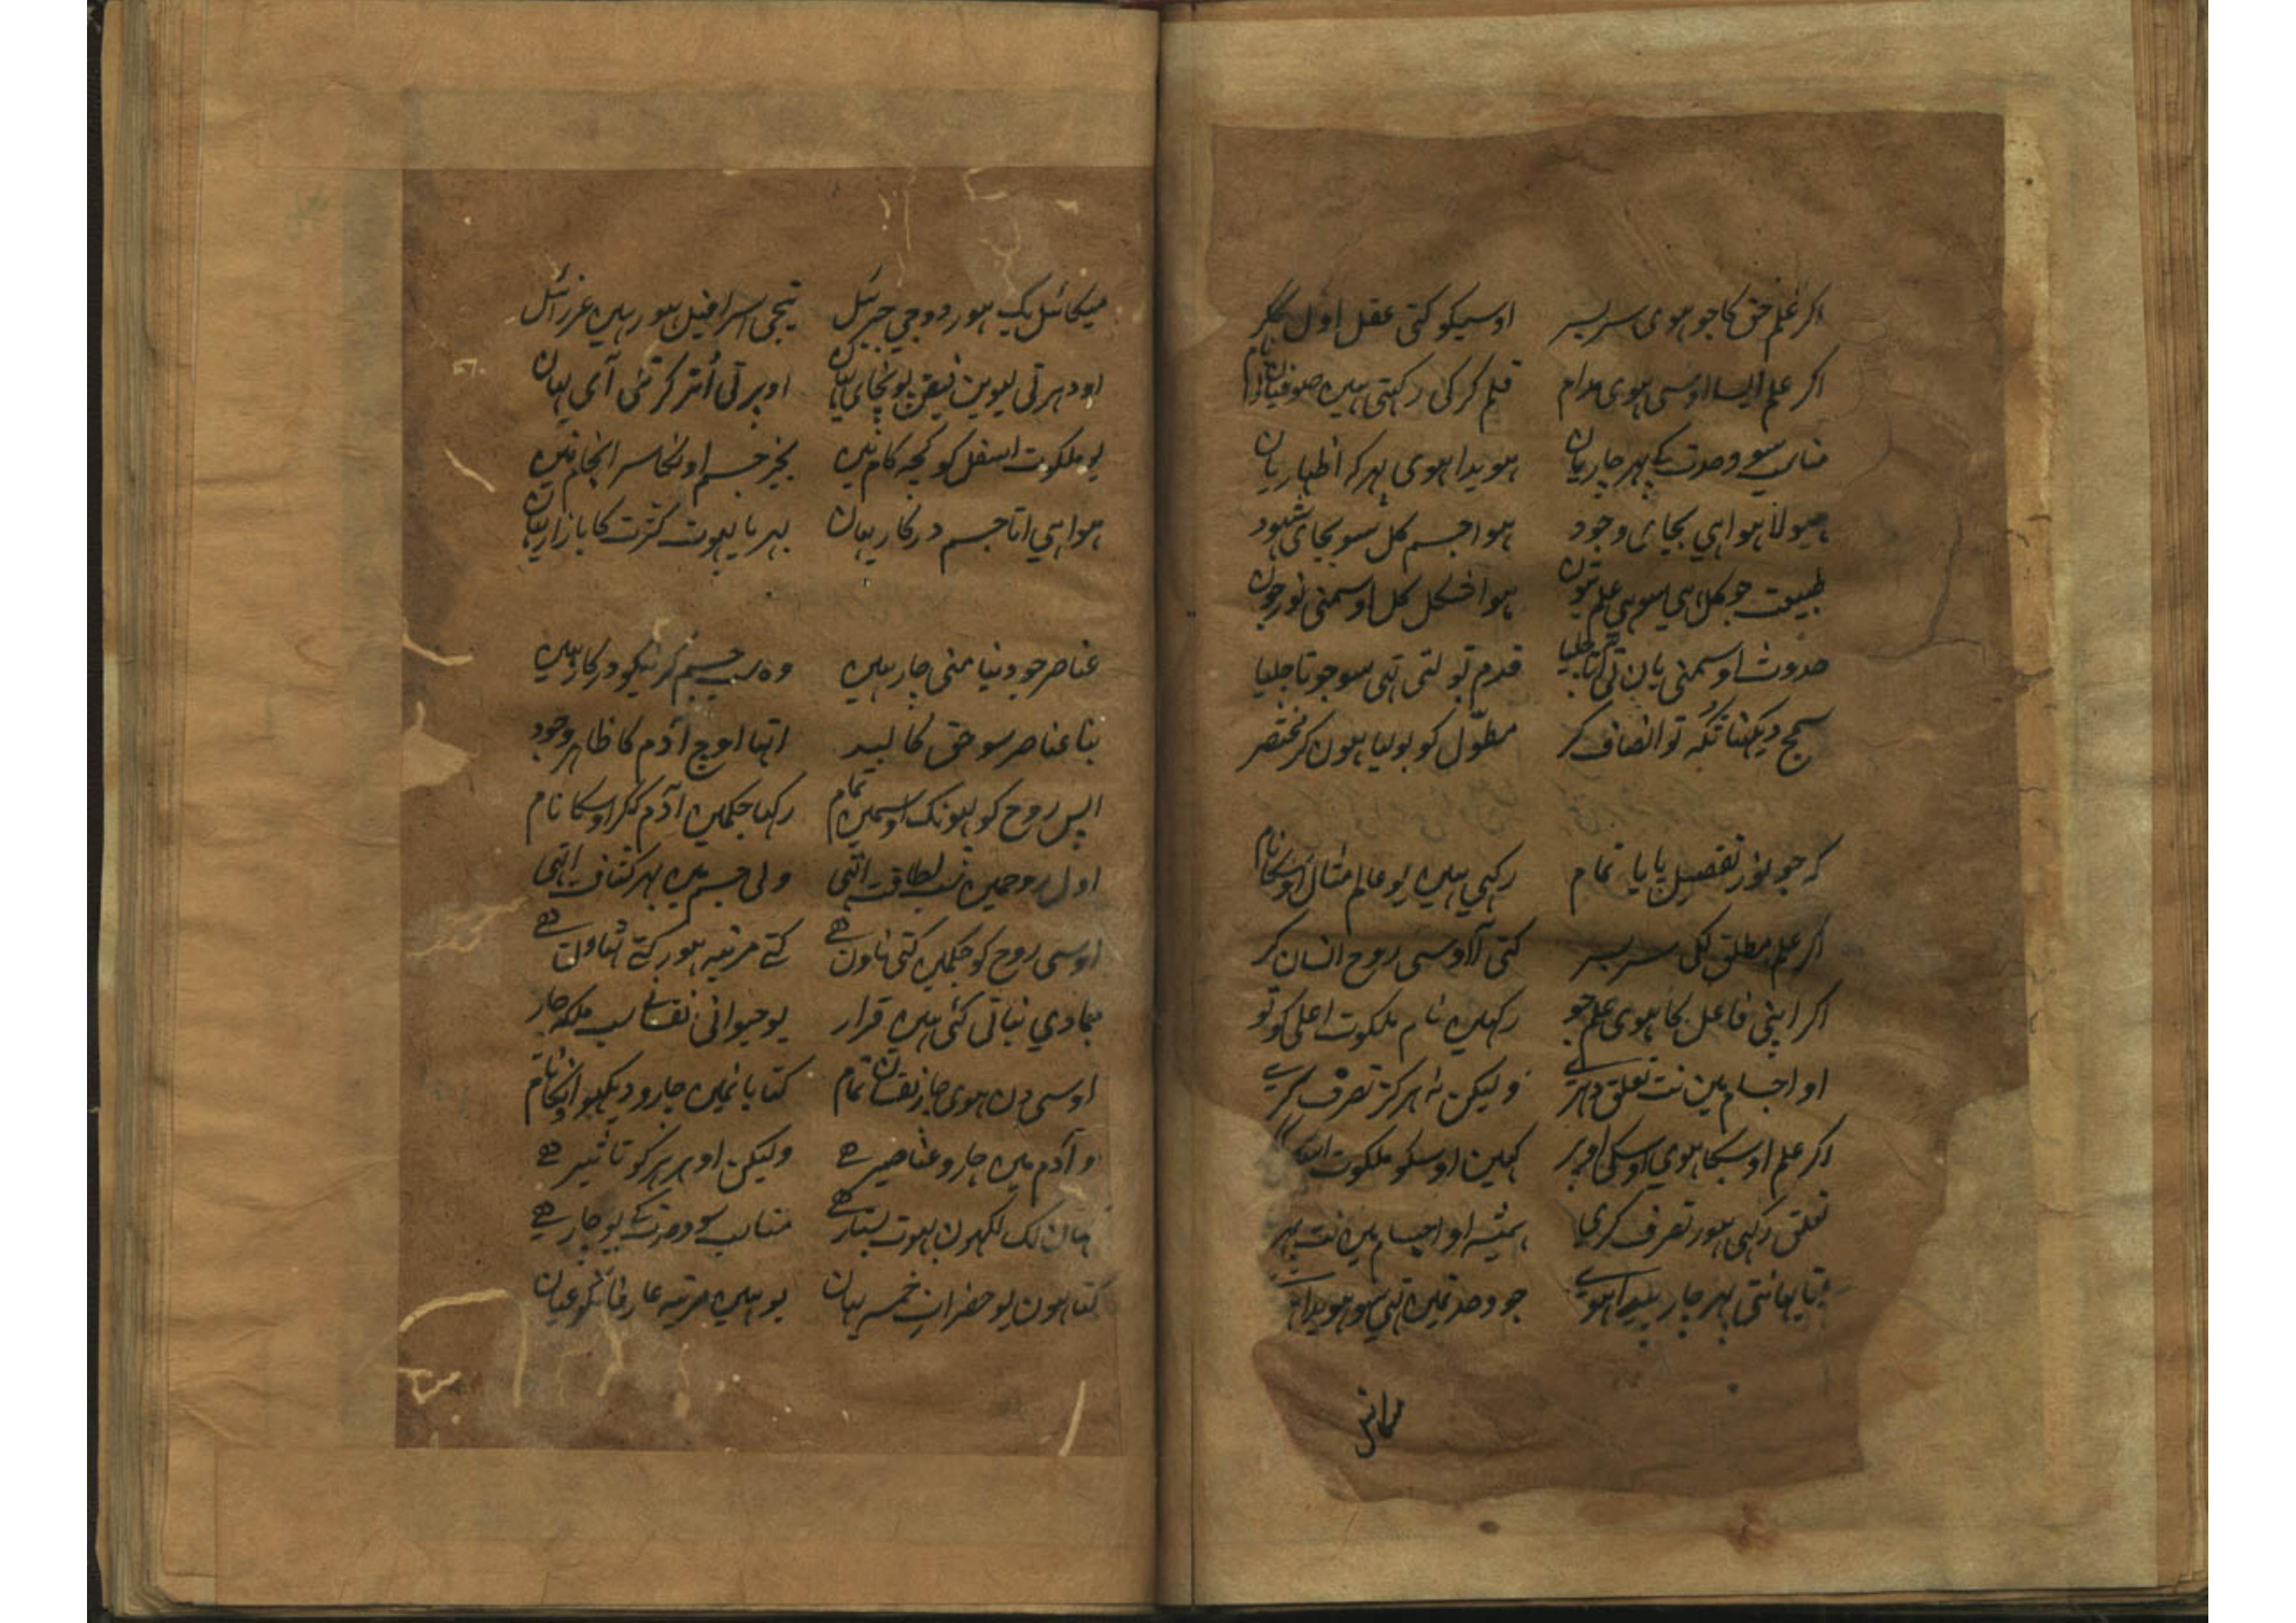 اکر علم حق کا جو هوی سربسر اوسیکو کتی عقل اول مکر
اکر علم ایسا اوسی هوی مدام قلم کر کی رکہتی هیں صوفیان نام
مناسب سو وحدت کے پہر چار یان هویدا هوی پہر کہ اظہار یان
هیولا هوا هی بجای وجود هوا جسم کل سو بجای شہود
طبیعت جو کل هی سو هی علم تون هوا شکل کل اوسمنی نور جون
حدوث اوسمنی یان تی قدم تو لتی تہی سو جو تا جلیا
سمج دیکہنا تو انصاف کر مطوّل کو بولیا هون کر مختصر
کہ جو نور تفصیل پایا تمام رکہی هیں یو عالم مثال اوسکا نام
اکر علم مطلق کل سربسر کتی اوسی روح انسان کر
اکر اپنی فاعل کا هوی علم جو رکہیں نام ملکوت اعلی کو تو
او اجسام میں نت تعلق دہرے ولیکن نہ هرکز تصرف کرے
اکر علم اوسکا هوی اوسکی اوپر کہیں اوسکو ملکوت
تعلق رکہی هور تصرف کری همیشہ او اجسام میں نت
پہر چار پیدا هوے جو وحدتمیں تہی سو هویدا
میکائل
میکائل یک هور دوجی جبرئل تیجی اسرافیل هور هیں عزرائل
اودہر تی لیویں فیض پونچای یہان اوپر تی اُتر کر تلی آی یہان
یو ملکوت اسفل کو کچہ کام نیں بغیر جسم اونکا سرانجام نیں
هوا هی اتا جسم درکار یہان بہریا بہوت کثرت کا بازار یہان
عناصر جو دنیا منی چار هیں وہ سب جسم کرنیکو درکار هیں
بنا عناصر سو حق کالبد اتہا اوچ آدم کا ظاهر وجود
اپس روح کو پہونک اوسمیں تمام رکہا جکمیں آدم ککر اوسکا نام
اول روحمیں سب لطافت اتہی ولی جسم میں پہر کثافت اتہی
اوسی روح کو جکمیں کتی ناون هے کتے مرتبہ هور کتے ٹہاون هے
جمادی نباتی کئی هیں قرار یو حیوانی نفسانی سب ملکہ چار
اوسی هوی چار نفسان تمام کتابانمیں چارو دیکہو انکا نام
و آدم میں چارو عناصر هے ولیکن او هر هر کو تاثیر هے
کہان لک لکہون بہوت بستار هے مناسب سو وحدت کے یو چار هے
کتا هون یو حضرات خمسہ بیان یو هیں مرتبہ عارفانکو عیان